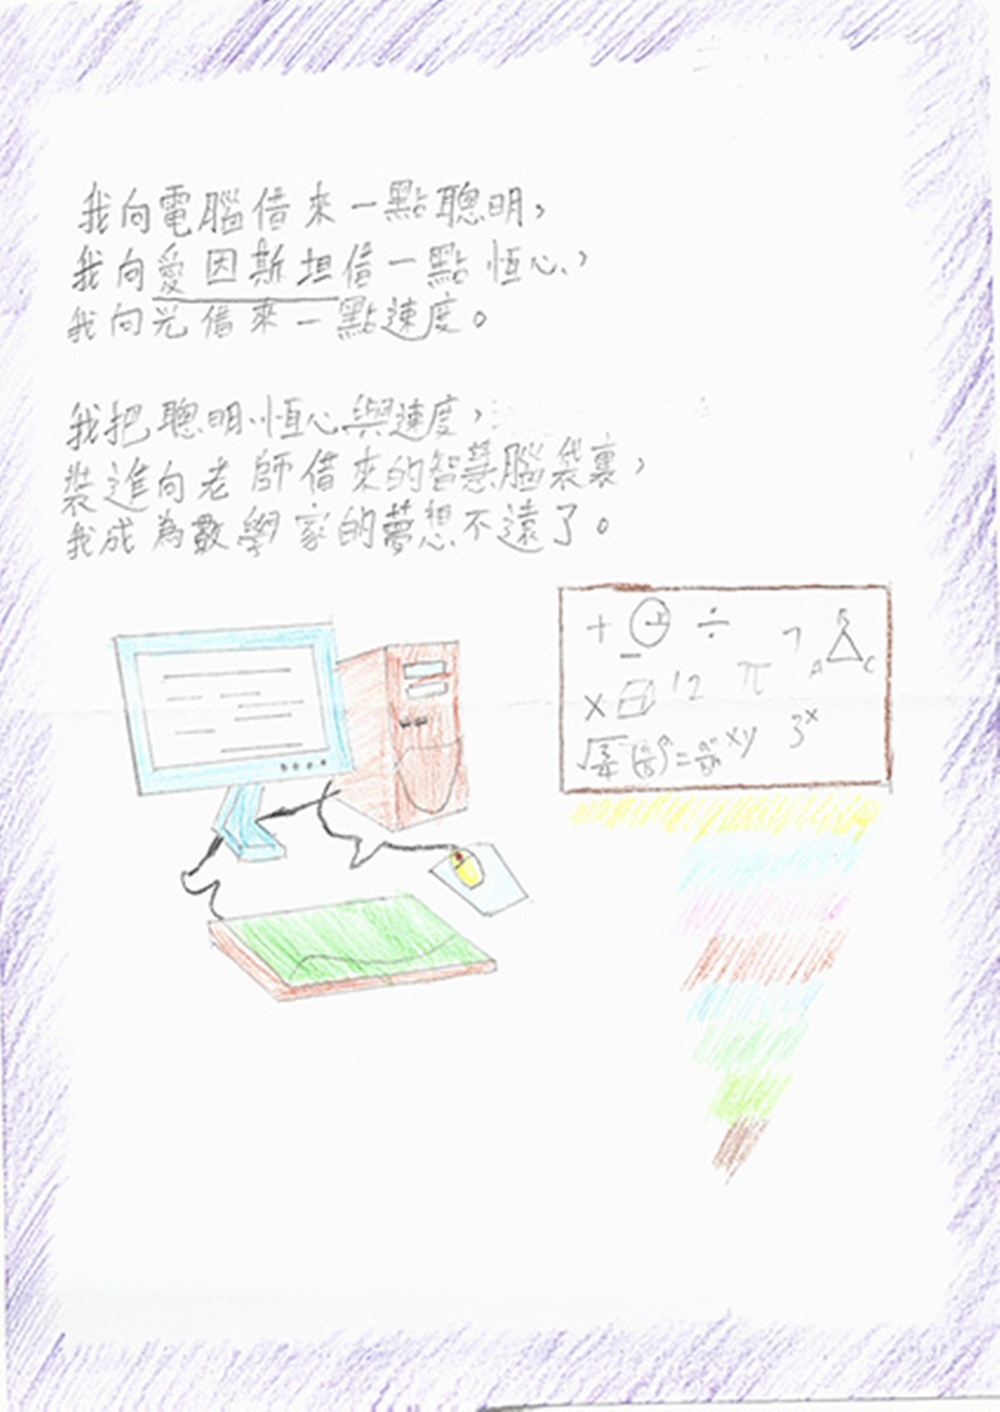 我向電腦借來一點聰明，
我向愛因斯坦借一點恆心，
我向光借來一點速度。
我把聰明恆心與速度，
裝進向老師借來的智慧腦袋裏，
我成為數學家的夢想不遠了。
+ ÷
B
A C
× 12 π
xy 3ˣ